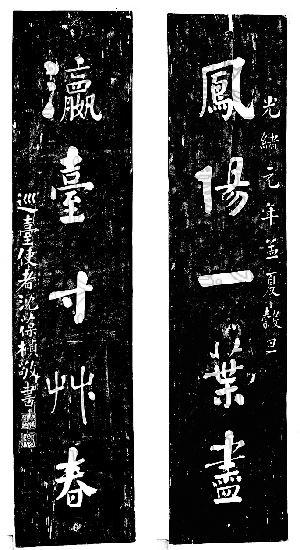 光緒元年孟夏穀旦
鳳陽一葉盡
瀛臺寸艸春
巡臺使者沈葆楨敬書